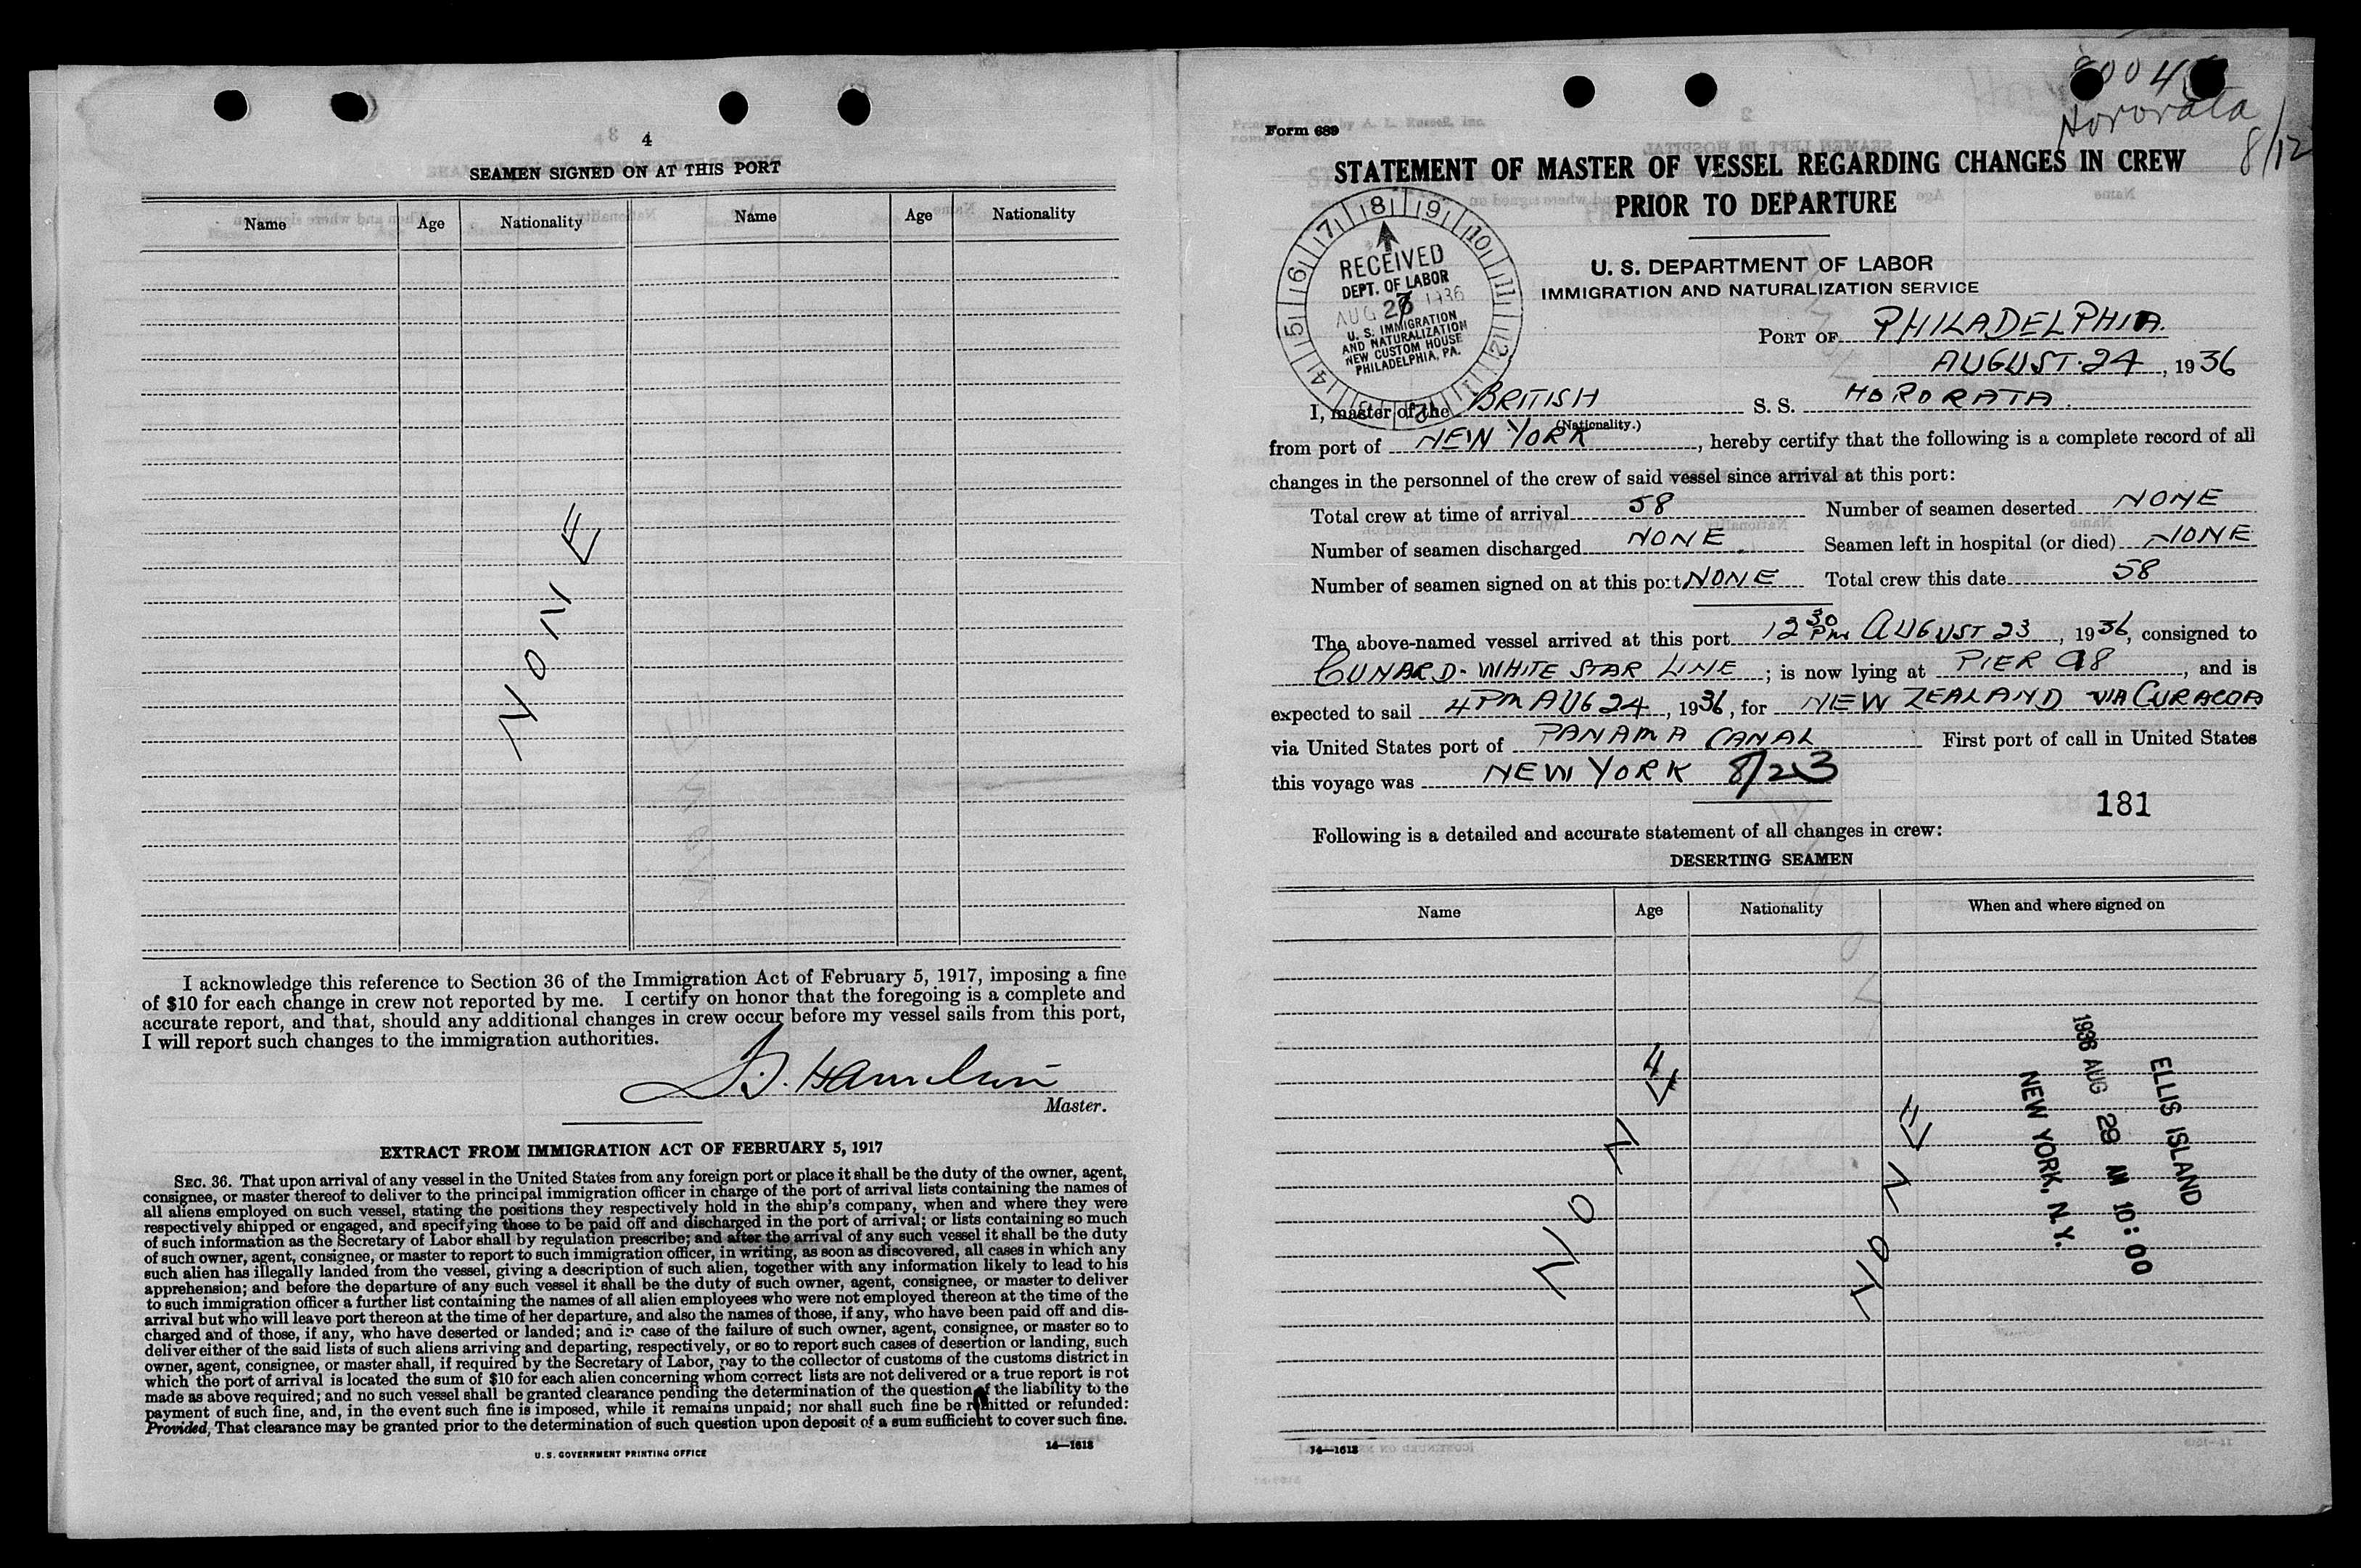 4
SEAMEN SIGNED ON AT THIS PORT
Name Age Nationality Name Age Nationality
NONE
I acknowledge this reference to Section 36 of the Immigration Act of February 5, 1917, imposing a fine
of $10 for each change in crew not reported by me. I certify on honor that the foregoing is a complete and
accurate report, and that, should any additional changes in crew occur before my vessel sails from this port,
I will report such changes to the immigration authorities.
Master.
EXTRACT FROM IMMIGRATION ACT OF FEBRUARY 5, 1917
SEC. 36. That upon arrival of any vessel in the United States from any foreign port or place it shall be the duty of the owner, agent,
consignee, or master thereof to deliver to the principal immigration officer in charge of the port of arrival lists containing the names of
all aliens employed on such vessel, stating the positions they respectively hold in the ship's company, when and where they were
respectively shipped or engaged, and specifying those to be paid off and discharged in the port of arrival; or lists containing so much
of such information as the Secretary of Labor shall by regulation prescribe; and after the arrival of any such vessel it shall be the duty
of such owner, agent, consignee, or master to report to such immigration officer, in writing, as soon as discovered, all cases in which any
such alien has illegally landed from the vessel, giving a description of such alien, together with any information likely to lead to his
apprehension; and before the departure of any such vessel it shall be the duty of such owner, agent, consignee, or master to deliver
to such immigration officer a further list containing the names of all alien employees who were not employed thereon at the time of the
arrival but who will leave port thereon at the time of her departure, and also the names of those, if any, who have been paid off and dis-
charged and of those, if any, who have deserted or landed; and in case of the failure of such owner, agent, consignee, or master so to
deliver either of the said lists of such aliens arriving and departing, respectively, or so to report such cases of desertion or landing, such
owner, agent, consignee, or master shall, if required by the Secretary of Labor, pay to the collector of customs of the customs district in
which the port of arrival is located the sum of $10 for each alien concerning whom correct lists are not delivered or a true report is not
made as above required; and no such vessel shall be granted clearance pending the determination of the question of the liability to the
payment of such fine, and, in the event such fine is imposed, while it remains unpaid; nor shall such fine be remitted or refunded:
Provided, That clearance may be granted prior to the determination of such question upon deposit of a sum sufficient to cover such fine.
U. S. GOVERNMENT PRINTING OFFICE 14—1618
Hororata
8/12
Form 689
STATEMENT OF MASTER OF VESSEL REGARDING CHANGES IN CREW
PRIOR TO DEPARTURE
U. S. DEPARTMENT OF LABOR
IMMIGRATION AND NATURALIZATION SERVICE
RECEIVED
DEPT. OF LABOR
AUG 1936
U. S. IMMIGRATION
AND NATURALIZATION
NEW CUSTOM HOUSE
PHILADELPHIA, PA.
PORT OF PHILADELPHIA.
AUGUST. 24, 1936
I, master of the BRITISH S. S. HORORATA.
(Nationality.)
from port of NEW YORK, hereby certify that the following is a complete record of all
changes in the personnel of the crew of said vessel since arrival at this port:
Total crew at time of arrival 58 Number of seamen deserted NONE
Number of seamen discharged NONE. Seamen left in hospital (or died) NONE
Number of seamen signed on at this port NONE Total crew this date 58
The above-named vessel arrived at this port 12 30 PM AUGUST 23, 1936, consigned to
CUNARD-WHITE STAR LINE; is now lying at PIER 98, and is
expected to sail 4 PM AUG 24, 1936, for NEW ZEALAND VIA CURACOA
via United States port of PANAMA CANAL First port of call in United States
this voyage was NEW YORK 8/23
181
Following is a detailed and accurate statement of all changes in crew:
DESERTING SEAMEN
Name Age Nationality When and where signed on
NONE
NONE
ELLIS ISLAND
1936 AUG 29 AM 10:00
NEW YORK, N.Y.
14—1618